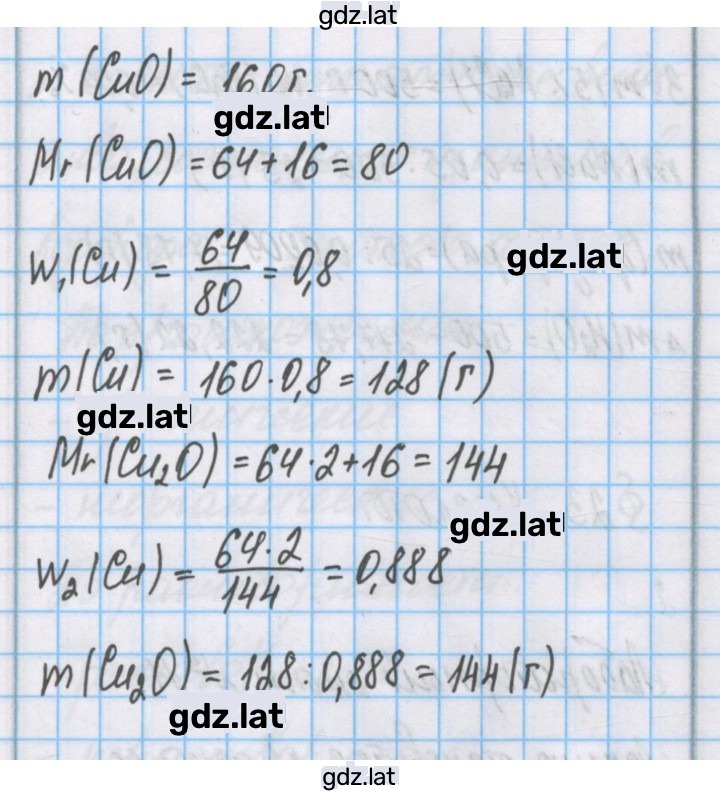 gdz.lat
m(CuO) = 160г.
gdz.lat
Mr(CuO) = 64+16 = 80
W₁(Cu) = 64/80 = 0,8
gdz.lat
m(Cu) = 160·0,8 = 128(г)
gdz.lat
Mr(Cu₂O) = 64·2+16 = 144
gdz.lat
W₂(Cu) = 64·2/144 = 0,888
m(Cu₂O) = 128:0,888 = 144(г)
gdz.lat
gdz.lat